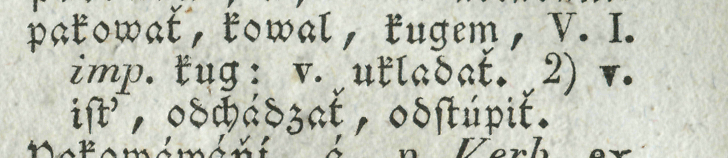 pakowať, kowal, kugem, V. I.
imp. kug: v. ukladať. 2) v.
isť, odchádzať, odstúpiť.